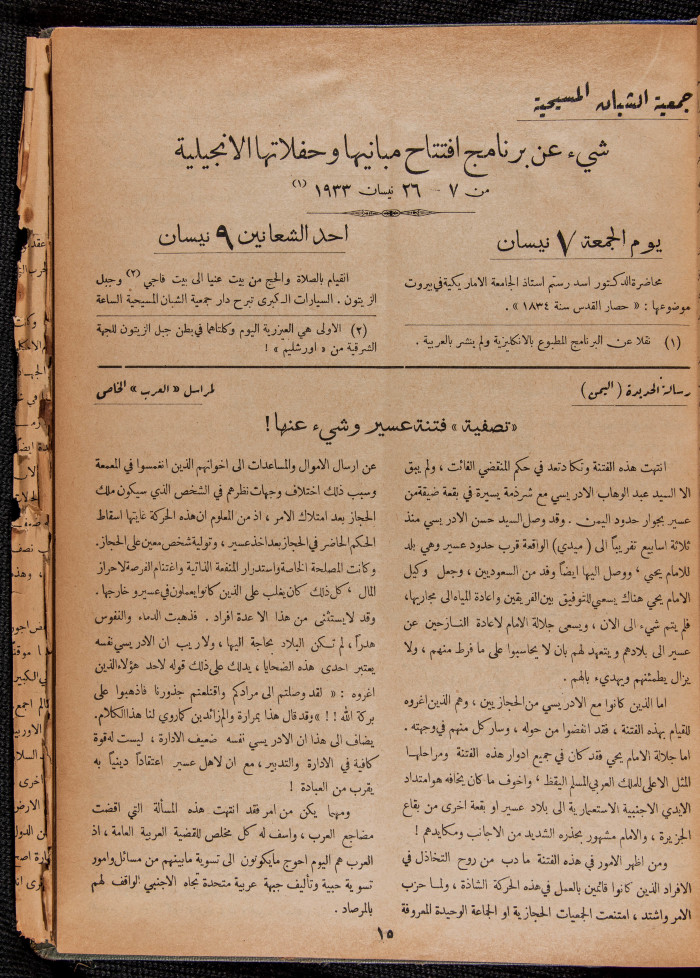 جمعية الشبان المسيحية
شيء عن برنامج افتتاح مبانيها وحفلاتها الانجيلية
من ٧ – ٢٦ نيسان ١٩٣٣ (١)
يوم الجمعة ٧ نيسان
محاضرة الدكتور اسد رستم استاذ الجامعة الاميركية في بيروت
موضوعها : « حصار القدس سنة ١٨٣٤ » .
(١) نقلا عن البرنامج المطبوع بالانكليزية ولم ينشر بالعربية .
احد الشعانين ٩ نيسان
القيام بالصلاة والحج من بيت عنيا الى بيت فاجي (٢) وجبل
الزيتون . السيارات الكبرى تبرح دار جمعية الشبان المسيحية الساعة
(٢) الاولى هي العيزرية اليوم وكلتاهما في بطن جبل الزيتون للجهة
الشرقية من « اورشليم » !
رسالة الحديدة ( اليمن )
لمراسل « العرب » الخاص
« تصفية » فتنة عسير وشيء عنها !
انتهت هذه الفتنة وتكاد تعد في حكم المنقضي الفائت ، ولم يبق
الا السيد عبد الوهاب الادريسي مع شرذمة يسيرة في بقعة ضيقة من
عسير بجوار حدود اليمن . وقد وصل السيد حسن الادريسي منذ
ثلاثة اسابيع تقريباً الى ( ميدي ) الواقعة قرب حدود عسير وهي بلد
للامام يحي ، ووصل اليها ايضاً وفد من السعوديين ، وجعل وكيل
الامام يحي هناك يسعى للتوفيق بين الفريقين واعادة المياه الى مجاريها ،
فلم يتم شيء الى الان ، ويسعى جلالة الامام لاعادة النازحين عن
عسير الى بلادهم ويتعهد لهم بان لا يحاسبوا على ما فرط منهم ، ولا
يزال يطمئنهم ويهديء بالهم .
اما الذين كانوا مع الادريسي من الحجازيين ، وهم الذين اغروه
للقيام بهذه الفتنة ، فقد انفضوا من حوله ، وسار كل منهم في وجهته .
اما جلالة الامام يحي فقد كان في جميع ادوار هذه الفتنة ومراحلها
المثل الاعلى للملك العربي المسلم اليقظ ، واخوف ما كان يخافه هو امتداد
الايدي الاجنبية الاستعمارية الى بلاد عسير او بقعة اخرى من بقاع
الجزيرة ، والامام مشهور بحذره الشديد من الاجانب ومكايدهم !
ومن اظهر الامور في هذه الفتنة ما دب من روح التخاذل في
الافراد الذين كانوا قائمين بالعمل في هذه الحركة الشاذة ، ولما حزب
الامر واشتد ، امتنعت الجمعيات الحجازية او الجماعة الوحيدة المعروفة
عن ارسال الاموال والمساعدات الى اخوانهم الذين انغمسوا في المعمعة
وسبب ذلك اختلاف وجهات نظرهم في الشخص الذي سيكون ملك
الحجاز بعد امتلاك الامر ، اذ من المعلوم ان هذه الحركة غايتها اسقاط
الحكم الحاضر في الحجاز بعد اخذ عسير ، وتولية شخص معين على الحجاز .
وكانت المصلحة الخاصة واستدرار المنفعة الذاتية واغتنام الفرصة لاحراز
المال ، كل ذلك كان يغلب على الذين كانوا يعملون في عسير وخارجها .
وقد لا يستثنى من هذا الا عدة افراد . فذهبت الدماء والنفوس
هدراً ، لم تكن البلاد بحاجة اليها ، ولا ريب ان الادريسي نفسه
يعتبر احدى هذه الضحايا ، يدلك على ذلك قوله لاحد هؤلاء الذين
اغروه : « لقد وصلتم الى مرادكم واقتلعتم جذورنا فاذهبوا على
بركة الله !! » وقد قال هذا بمرارة والم زائدين كما روي لنا هذا الكلام .
يضاف الى هذا ان الادريسي نفسه ضعيف الادارة ، ليست له قوة
كافية في الادارة والتدبير ، مع ان لاهل عسير اعتقاداً دينياً به
يقرب من العبادة !
ومهما يكن من امر فقد انتهت هذه المسألة التي اقضت
مضاجع العرب ، واسف له كل مخلص للقضية العربية العامة ، اذ
العرب هم اليوم احوج ما يكونون الى تسوية ما بينهم من مسائل وامور
تسوية حبية وتأليف جبهة عربية متحدة تجاه الاجنبي الواقف لهم
بالمرصاد .
١٥